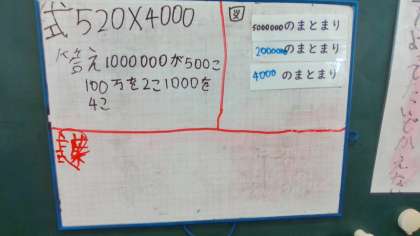 式520×4000
答え1000000が500こ
100万を2こ1000を
4こ
図
5000000のまとまり
2000000のまとまり
4000のまとまり